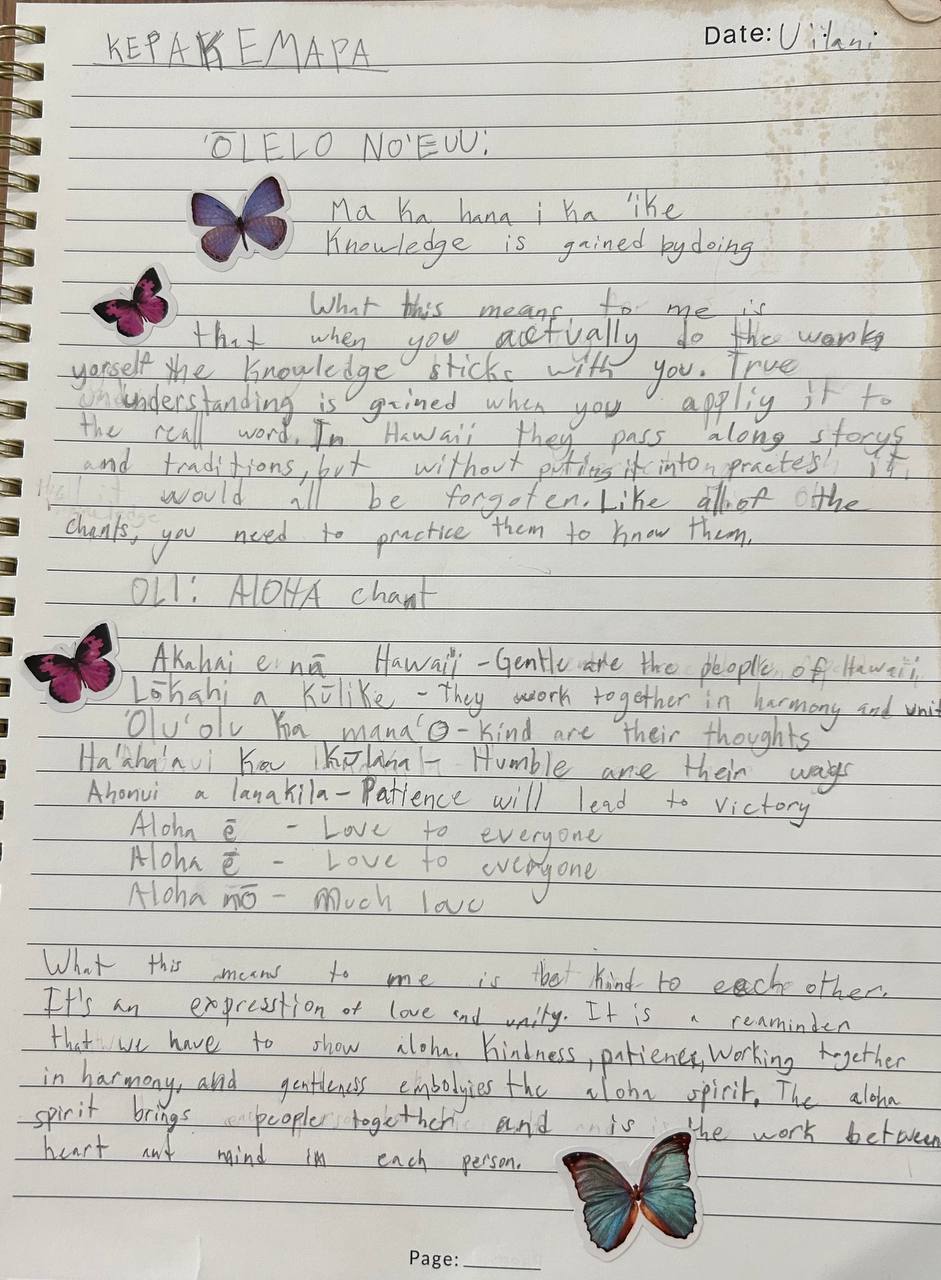 KEPAKEMAPA
Date: Uilani
'ŌLELO NO'EUU:
Ma Ka hana i Ka 'ike
Knowledge is gained by doing
What this means to me is
that when you actually do the works
yorself the Knowledge sticks with you. True
understanding is gained when you appliy it to
the reall word. In Hawaii they pass along storys
and traditions, but without puting it into practes it
would all be forgoten. Like all of the
chants, you need to practice them to Know them.
OLI: AlOHA chant
Akahai e nā Hawai'i - Gentle are the people of Hawaii
Lōkahi a Kūlike - They work together in harmony and unit
'Olu'olu Ka mana'o - Kind are their thoughts
Ha'aha'a Ka Kūlana - Humble are their ways
Ahonui a lanakila - Patience will lead to victory
Aloha ē - Love to everyone
Aloha ē - Love to everyone
Aloha nō - Much love
What this means to me is be Kind to each other.
It's an expresstion of love and unity. It is a reaminder
that we have to show aloha. Kindness, patience, Working together
in harmony, and gentleness embodyies the aloha spirit. The aloha
spirit brings people together and is the work between
heart ant mind in each person.
Page: